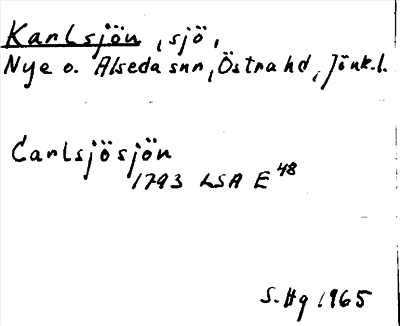 Karlsjön, sjö,
Nye o. Alseda snr, Östra hd, Jönk.l.
Carlsjösjön
1793 LSA E48
S.Hg 1965